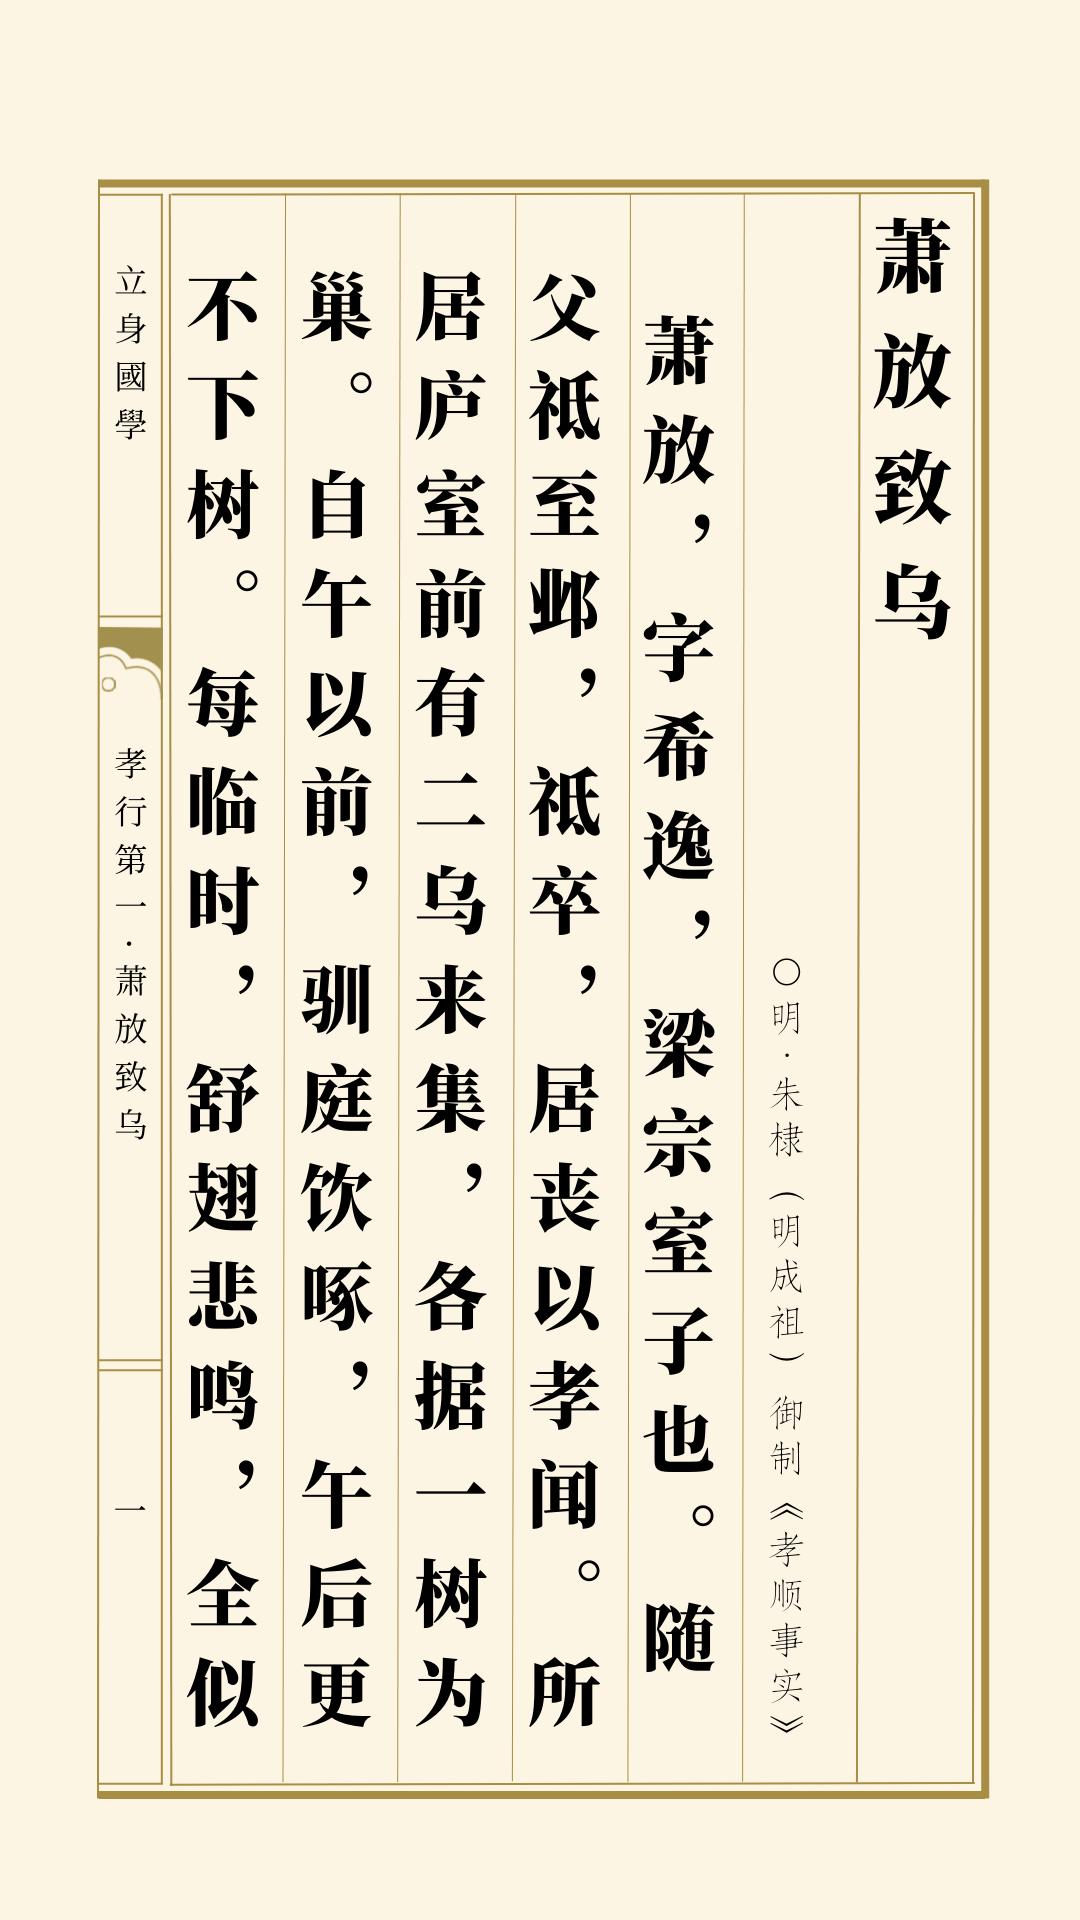 萧放致乌
○明·朱棣（明成祖）御制《孝顺事实》
萧放，字希逸，梁宗室子也。随
父祗至邺，祗卒，居丧以孝闻。所
居庐室前有二乌来集，各据一树为
巢。自午以前，驯庭饮啄，午后更
不下树。每临时，舒翅悲鸣，全似
立身國學
孝行第一·萧放致乌
一